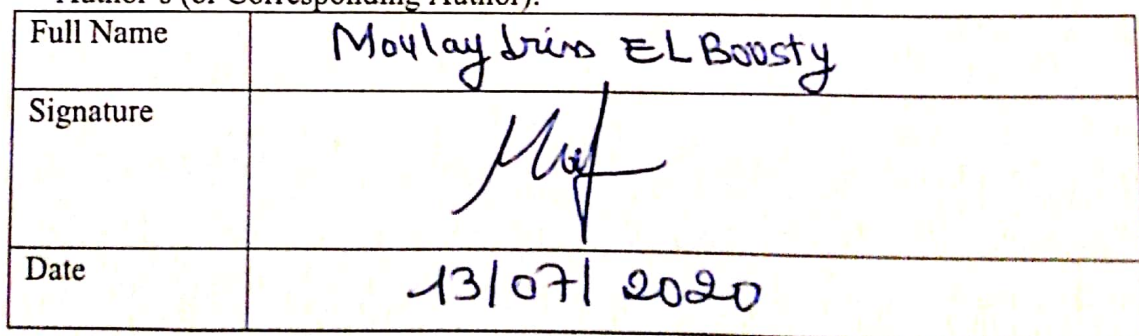 Author's (or Corresponding Author):
Full Name Moulay driss EL Bousty
Signature
Date 13/07/2020